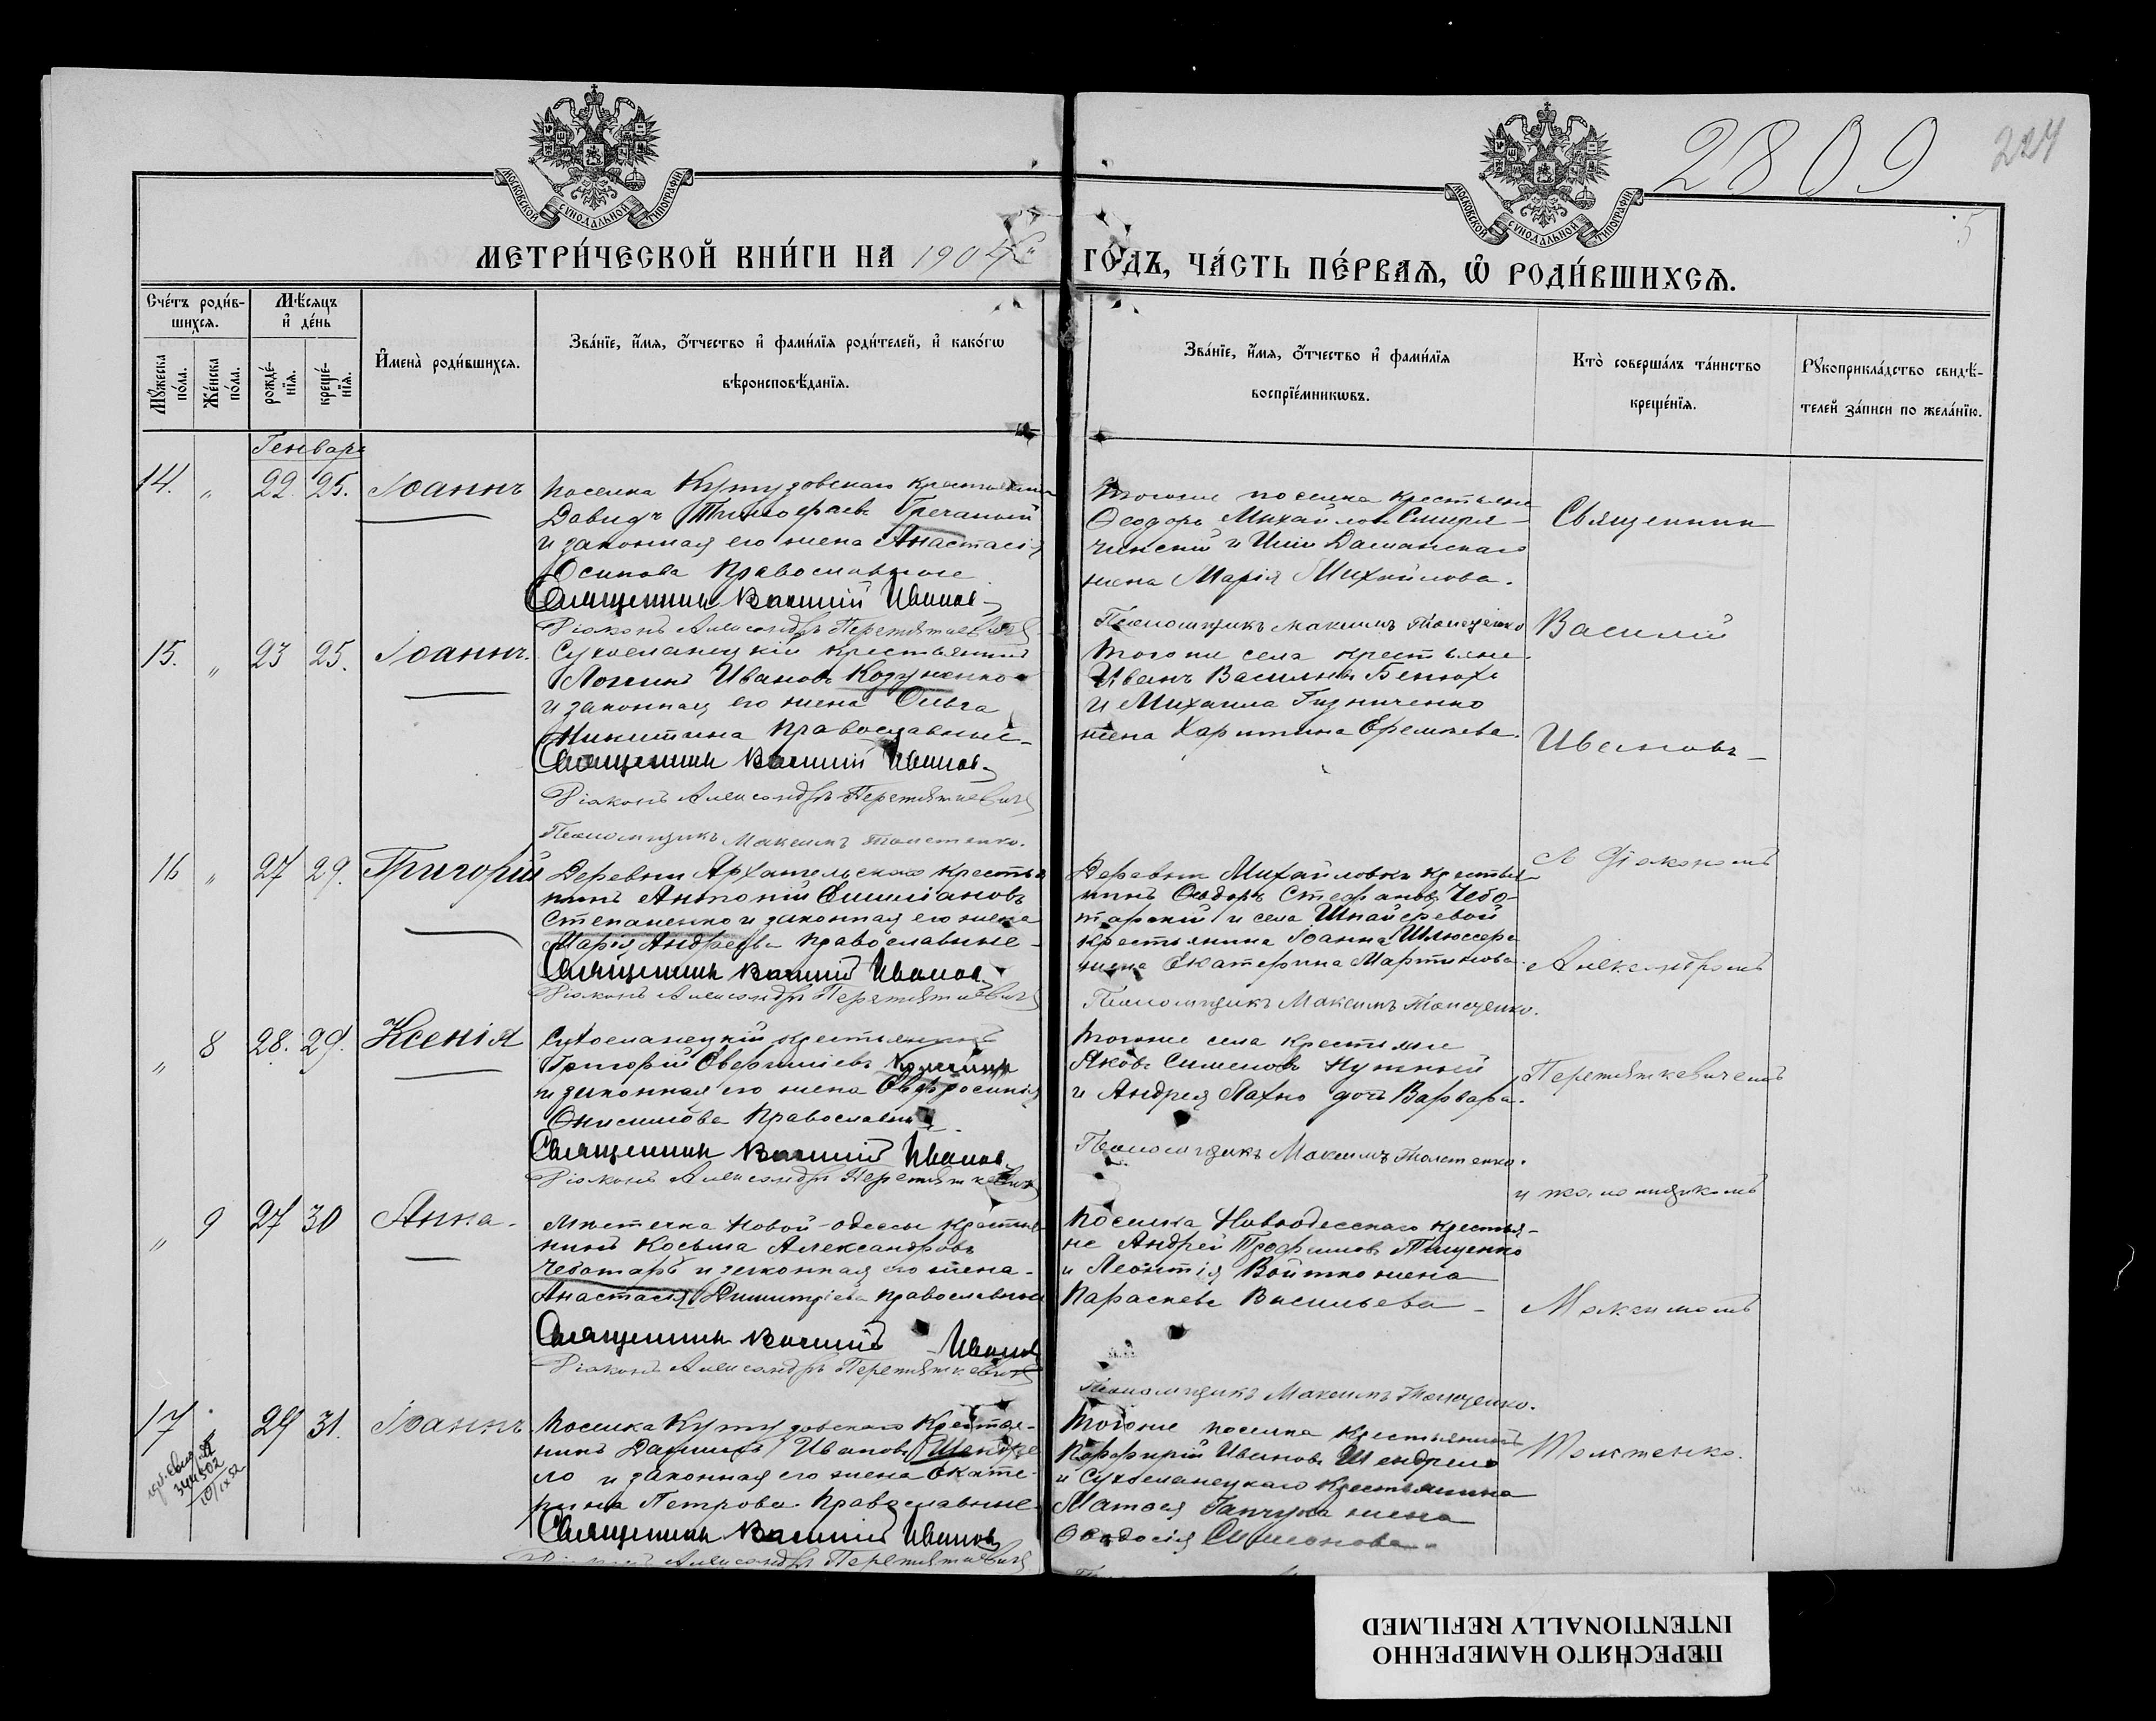 2809
224
5
МОСКОВСКОЙ СУНОДАЛЬНОЙ ТИПОГРАФІИ
МОСКОВСКОЙ СУНОДАЛЬНОЙ ТИПОГРАФІИ
МЕТРИ́ЧЕСКОЙ КНИ́ГИ НА 1904й ГО́ДЪ, ЧА́СТЬ ПЕ́РВАЯ, Ѡ РОДИ́ВШИХСЯ.
Сче́тъ роди́в-
шихся.
Мѣ́сяцъ
и́ де́нь
Му́жеска по́ла.
Же́нска по́ла.
рожде́-
нїя.
креще́-
нїя.
И̓мена̀ роди́вшихся.
Зва́нїе, и́мя, о́тчество и́ фами́лїя роди́телей, и́ како́гѡ
вѣроисповѣ́данїя.
Зва́нїе, и́мя, о́тчество и́ фами́лїя
воспрїе́мникѡвъ.
Кто̀ соверша́лъ та́инство
креще́нїя.
Рукоприкла́дство свидѣ́-
телей за́писи по жела́нїю.
Генварь
14. " 22. 25. Іоаннъ
поселка Кутузовскаго крестьянинъ
Давидъ Тимофеевъ Гречаный
и законная его жена Анастасія
Осипова православные
Священникъ Василій Ивановъ
Діаконъ Александръ Перетяткевичъ
тогоже поселка крестьяне
Ѳеодоръ Михайловъ
жена Марія Михайлова.
Псаломщикъ Максимъ Толстенко
Священник
Василій
Ивановъ
15. " 23 25. Іоаннъ.
Сухоеланецкій крестьянинъ
Логинъ Ивановъ Козуненко
и законная его жена Ольга
Никитина православные
Священникъ Василій Ивановъ
Діаконъ Александръ Перетяткевичъ
Псаломщикъ Максимъ Толстенко.
тогоже села крестьяне
Иванъ Васильевъ Бенюхъ
и Михаила
жена Харитина Еремѣева.
16 " 27 29. Григорій
Деревни Архангельской крестья
нинъ Антоній Емиліановъ
Степаненко и законная его жена
Марія Андреева православные
Священникъ Василій Ивановъ
Діаконъ Александръ Перетяткевичъ
Деревни Михайловки крестья-
нинъ Ѳеодоръ Стефановъ Чебо-
тарскій и села
крестьянина Іоанна Шлюссера
жена Екатерина Мартинова
Псаломщикъ Максимъ Толстенко.
съ діакономъ
Александромъ
" 8 28. 29. Ксенія
Сухоеланецкій крестьянинъ
Григорій
и законная его жена Евфросинія
Онисимова православные
Священникъ Василій Ивановъ
Діаконъ Александръ Перетяткевичъ
тогоже села крестьяне
Яковъ Симеоновъ Нужный
и Андрея Лахно дочь Варвара.
Псаломщикъ Максимъ Толстенко.
Перетяткевичемъ
и псаломщикомъ
" 9 27 30 Анна.
Мѣстечка Новой-Одессы крестья
нинъ Косьма Александровъ
Чеботарь и законная его жена
Анастасія Димитріева православные
Священникъ Василій Ивановъ
Діаконъ Александръ Перетяткевичъ
поселка Новоодесскаго крестья-
не Андрей Трофимовъ Тищенко
и Леонтія Войтко жена
Параскева Васильева
Псаломщикъ Максимъ Толстенко.
Максимомъ
17 " 29 31. Іоаннъ
344502
поселка Кутузовскаго крестья-
нинъ Даніилъ Ивановъ Шендре
ло и законная его жена Екате-
рина Петрова православные
Священникъ Василій Ивановъ
Александръ Перетяткевичъ
тогоже поселка крестьянинъ
Порфирій Ивановъ Шендрело
и Сухоеланецкаго крестьянина
Матѳея жена
Ѳеодосія Симеонова.
Толстенко.
ПЕРЕСНЯТО НАМЕРЕННО
INTENTIONALLY REFILMED